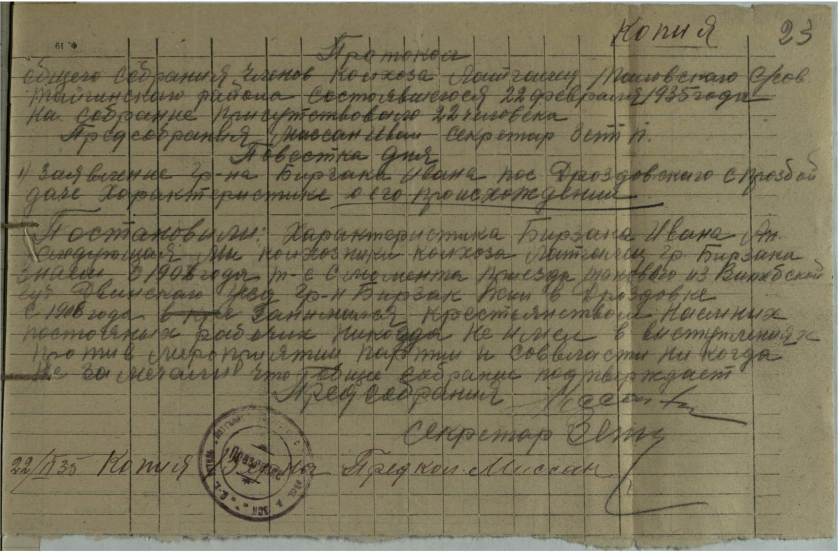 Копия 23
Протокол
общего собрания членов колхоза Латгалец
Тайгинского района состоявшегося 22 февраля 1935 года
На собрание присутствовало 22 человека
Предсобрания Миссан Иван секретар
Повестка дня
1) Заявление гр-на Бирзака Ивана пос Дроздовского с прозбой
даче Характеристике о его происхождении
Постановили: Характеристика Бирзака Ивана
следующая Мы колхозники колхоза Латгалец гр. Бирзака
знаем с 1908 года т-е с момента приезда такового из Витебской
Двинскаго уезд гр-н Бирзак жил в Дроздовке
с 1908 года занимался крестьянством наемных
постояных рабочих никогда не имел в виступлениях
против мероприятии партии и соввласти никогда
не замечали что общие собрание подтверждает
Пред собрания
секретар
22/II 35 Копия верна Предкол. Миссан